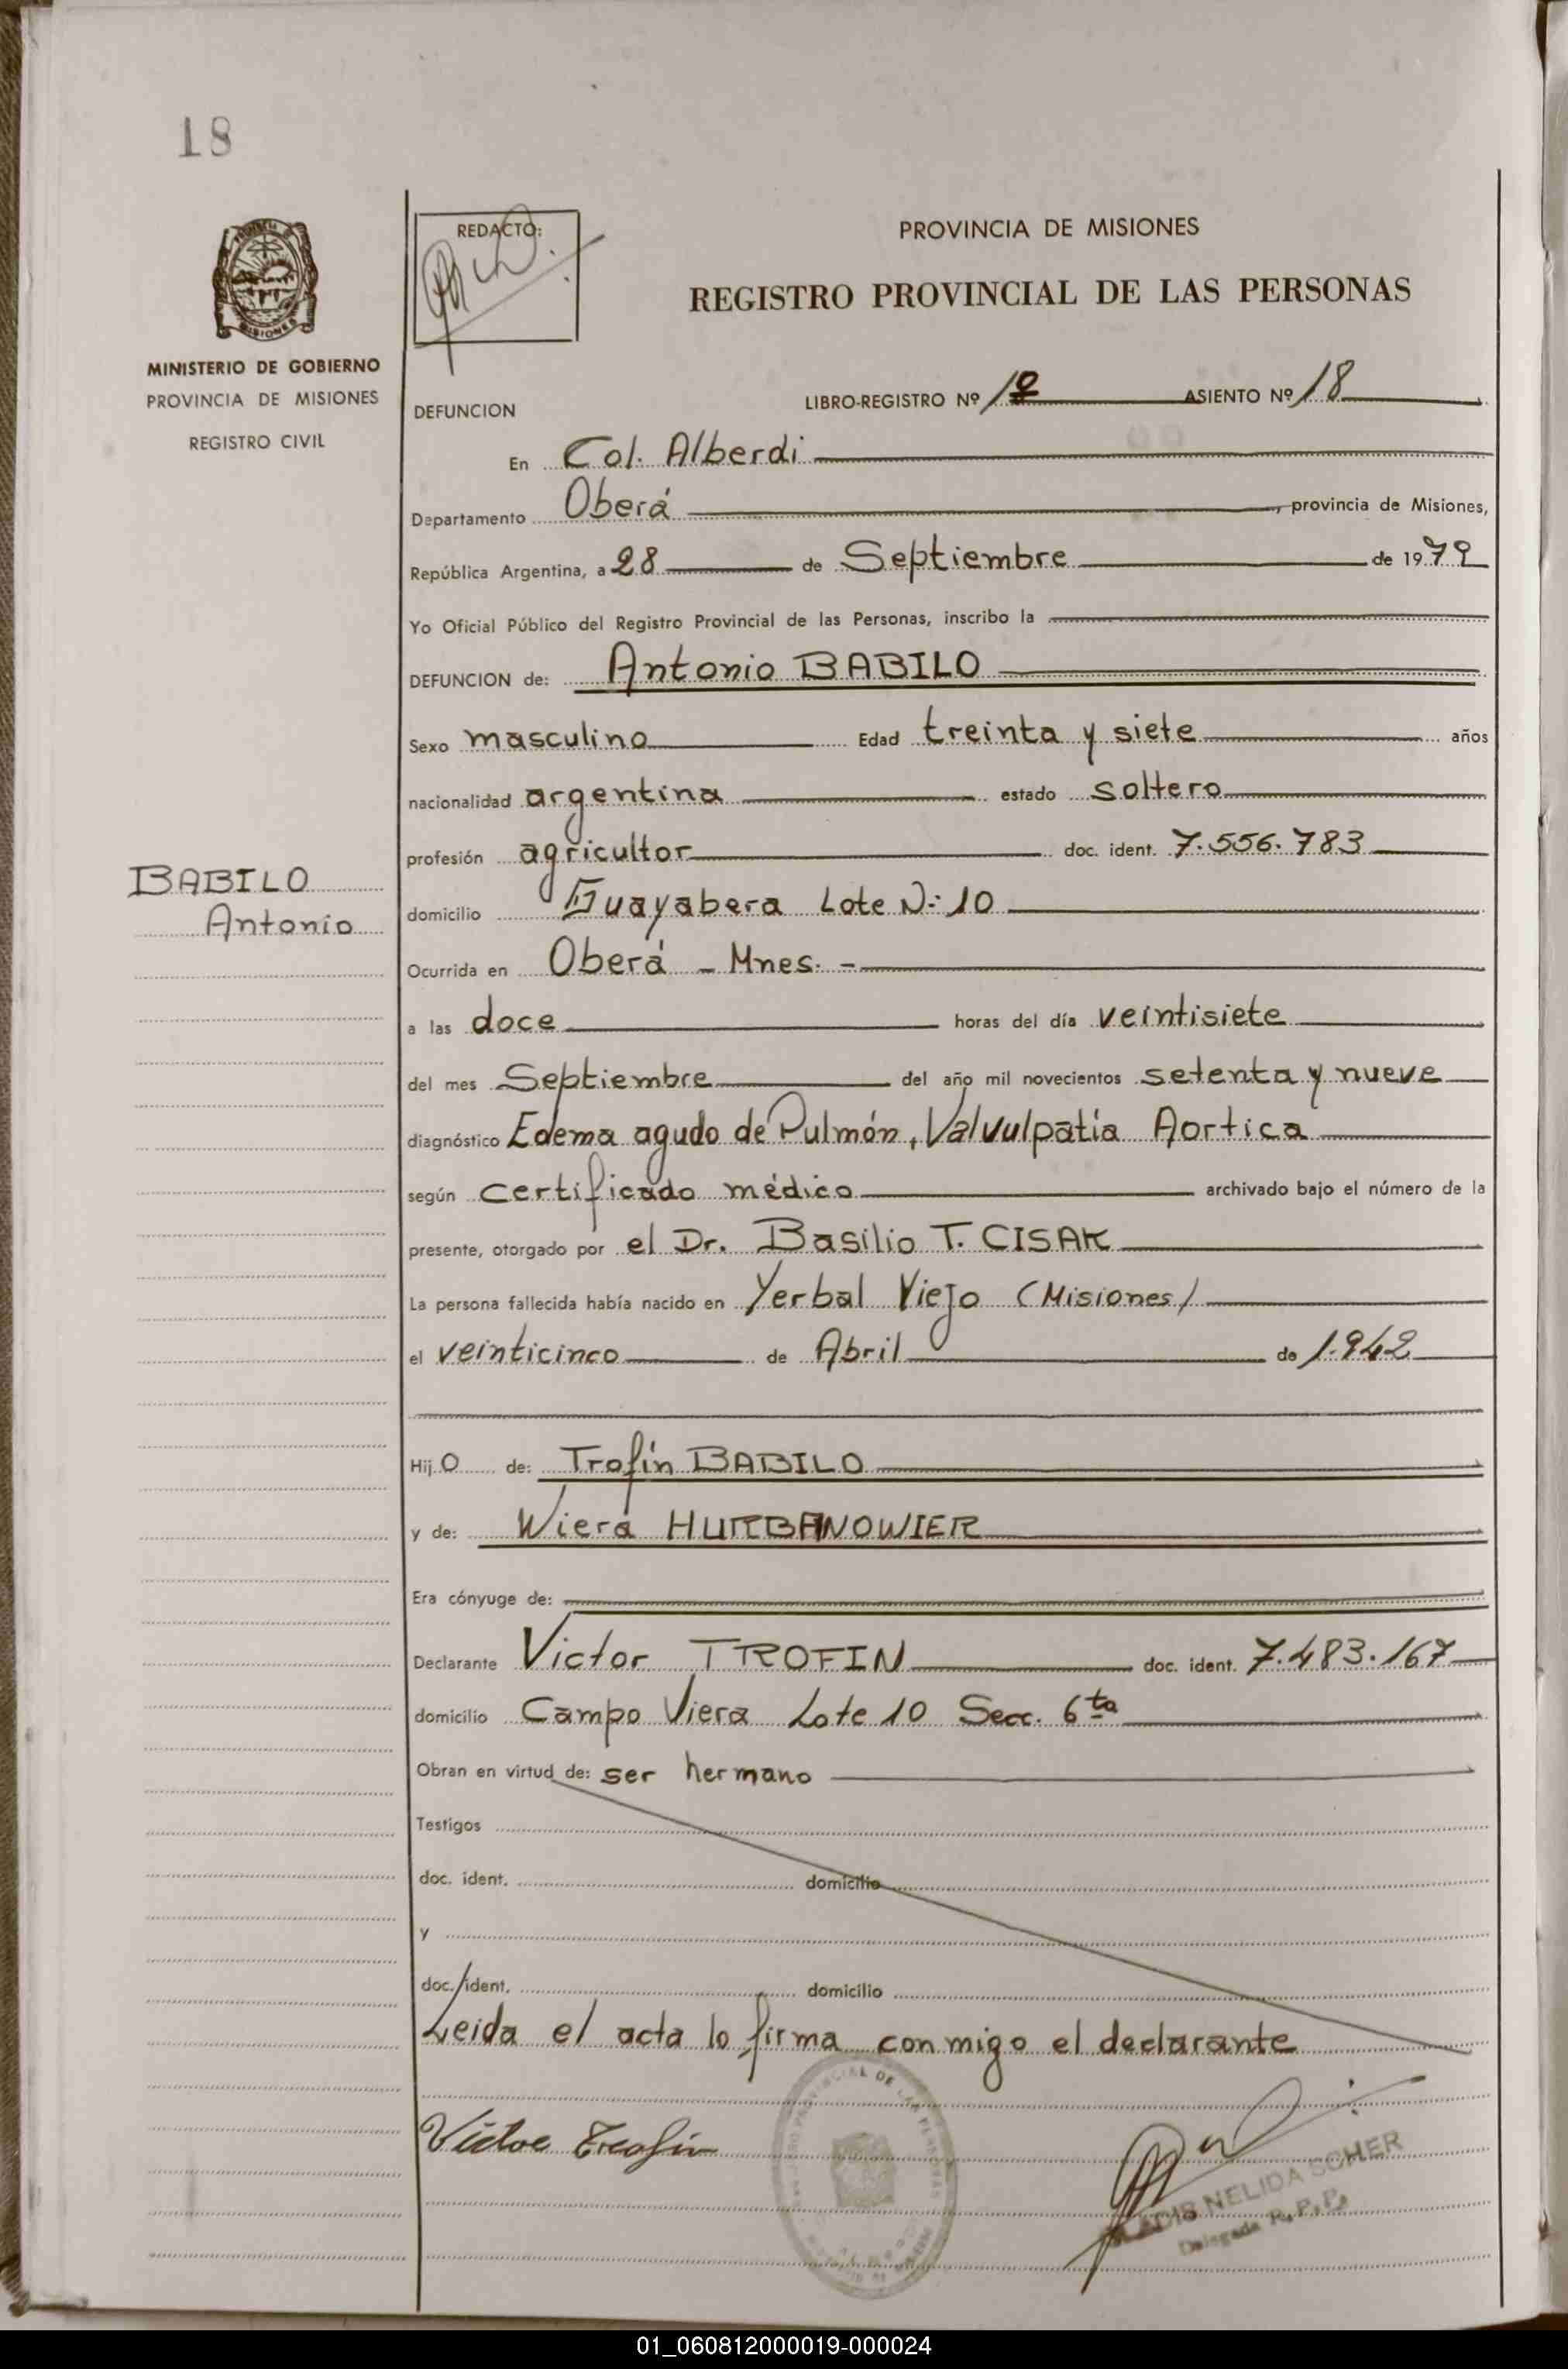 18
PROVINCIA DE MISIONES
REGISTRO PROVINCIAL DE LAS PERSONAS
REDACTO:
MISIONES
MINISTERIO DE GOBIERNO
PROVINCIA DE MISIONES
REGISTRO CIVIL
DEFUNCION LIBRO-REGISTRO Nº 1º ASIENTO Nº 18
En Col. Alberdi
Departamento Oberá, provincia de Misiones,
República Argentina, a 28 de Septiembre de 1979
Yo Oficial Público del Registro Provincial de las Personas, inscribo la
DEFUNCION de: Antonio BABILO
Sexo masculino Edad treinta y siete años
nacionalidad argentina estado soltero
profesión agricultor doc. ident. 7.556.783
BABILO
Antonio
domicilio Guayabera Lote Nº: 10
Ocurrida en Oberá - Mnes. -
a las doce horas del día veintisiete
del mes Septiembre del año mil novecientos setenta y nueve
diagnóstico Edema agudo de Pulmón, Valvulpatía Aortica
según certificado médico archivado bajo el número de la
presente, otorgado por el Dr. Basilio T. CISAK
La persona fallecida había nacido en Yerbal Viejo (Misiones)
el veinticinco de Abril de 1.942
Hij o de: Trofín BABILO
y de: Wiera HURBANOWIER
Era cónyuge de:
Declarante Victor TROFIN doc. ident. 7.483.167
domicilio Campo Viera Lote 10 Secc. 6ta
Obran en virtud de: ser hermano
Testigos
doc. ident. domicilio
y
doc. ident. domicilio
Leida el acta lo firma conmigo el declarante
Victor Trofin
NELIDA SCHER
Delegada R.P.P.
01_060812000019-000024